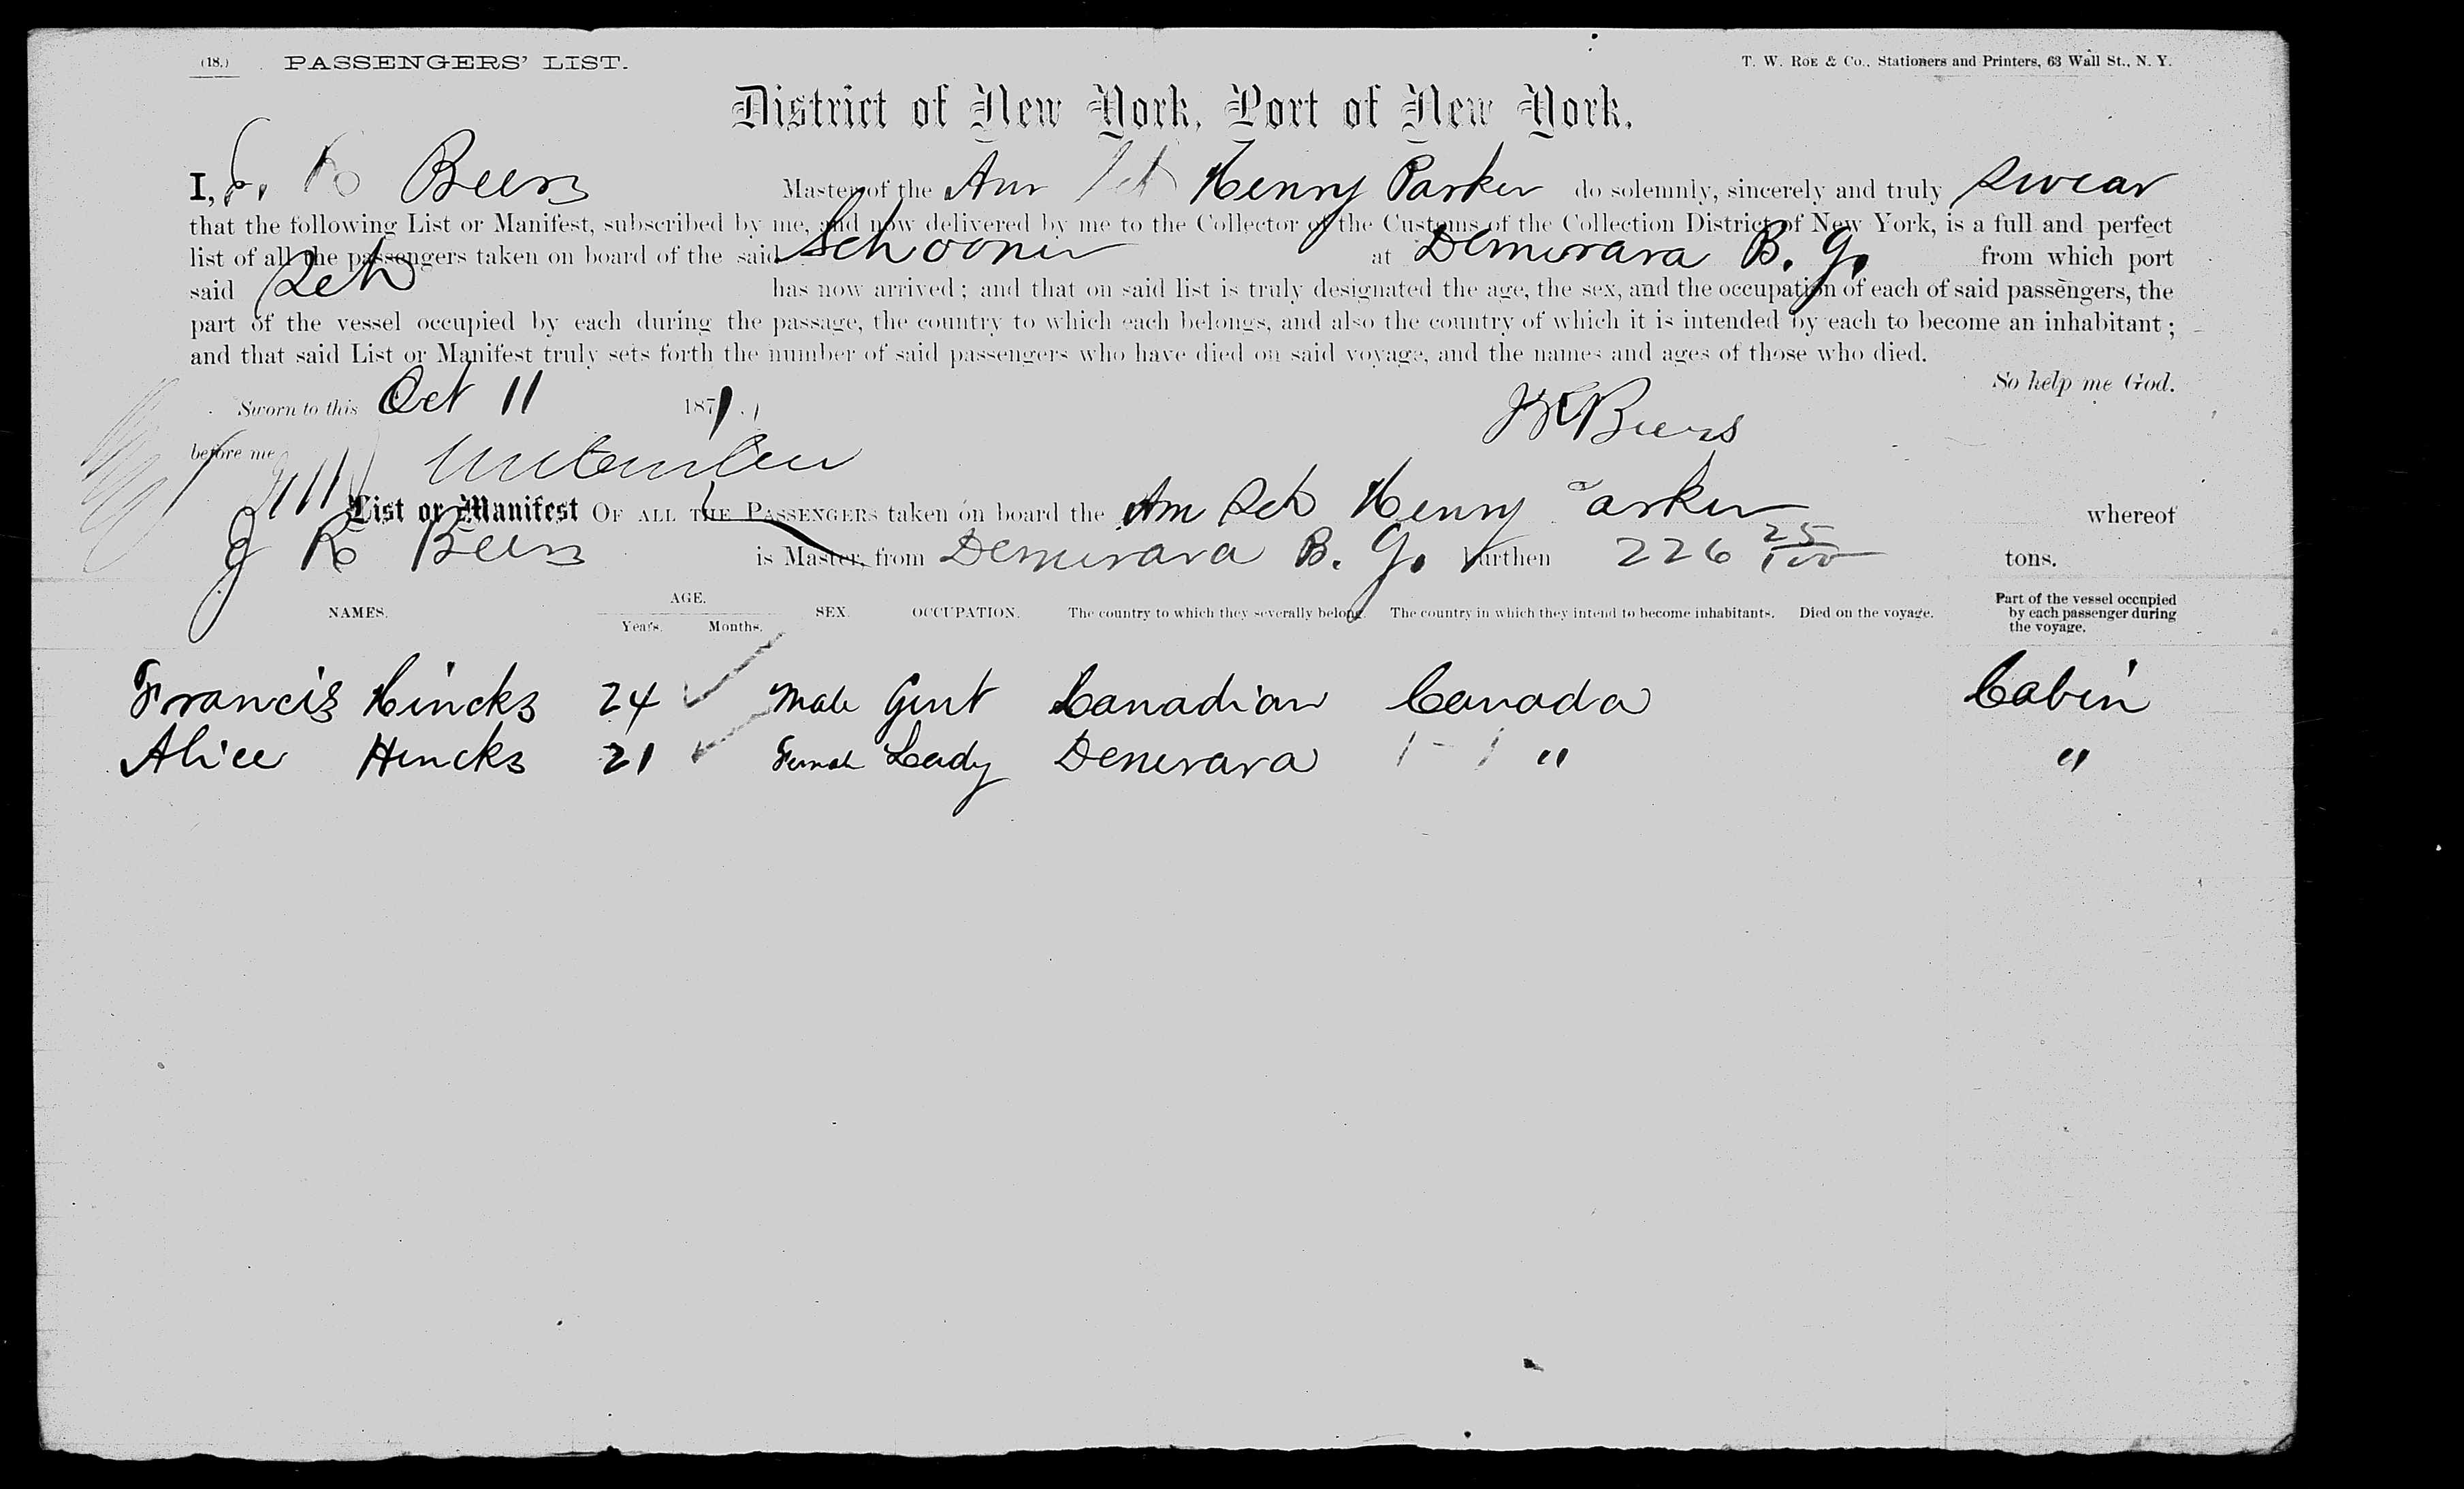 (18.) PASSENGERS' LIST. T. W. ROE & Co., Stationers and Printers, 63 Wall St., N. Y.
District of New York, Port of New York.
I, J. R Beers Master of the Am Sch Henry Parker do solemnly, sincerely and truly swear
that the following List or Manifest, subscribed by me, and now delivered by me to the Collector of the Customs of the Collection District of New York, is a full and perfect
list of all the passengers taken on board of the said Schooner at Demerara B. G. from which port
said Sch has now arrived; and that on said list is truly designated the age, the sex, and the occupation of each of said passengers, the
part of the vessel occupied by each during the passage, the country to which each belongs, and also the country of which it is intended by each to become an inhabitant;
and that said List or Manifest truly sets forth the number of said passengers who have died on said voyage, and the names and ages of those who died.
So help me God.
Sworn to this Oct 11 1871. J R Beers
before me
List or Manifest OF ALL THE PASSENGERS taken on board the Am Sch Henry Parker whereof
J R Beers is Master, from Demerara B. G. burthen 226 25/100 tons.
NAMES. AGE. Years. Months. SEX. OCCUPATION. The country to which they severally belong. The country in which they intend to become inhabitants. Died on the voyage. Part of the vessel occupied by each passenger during the voyage.
Francis Hincks 24 Male Gent Canadian Canada Cabin
Alice Hincks 21 Female Lady Demerara " "